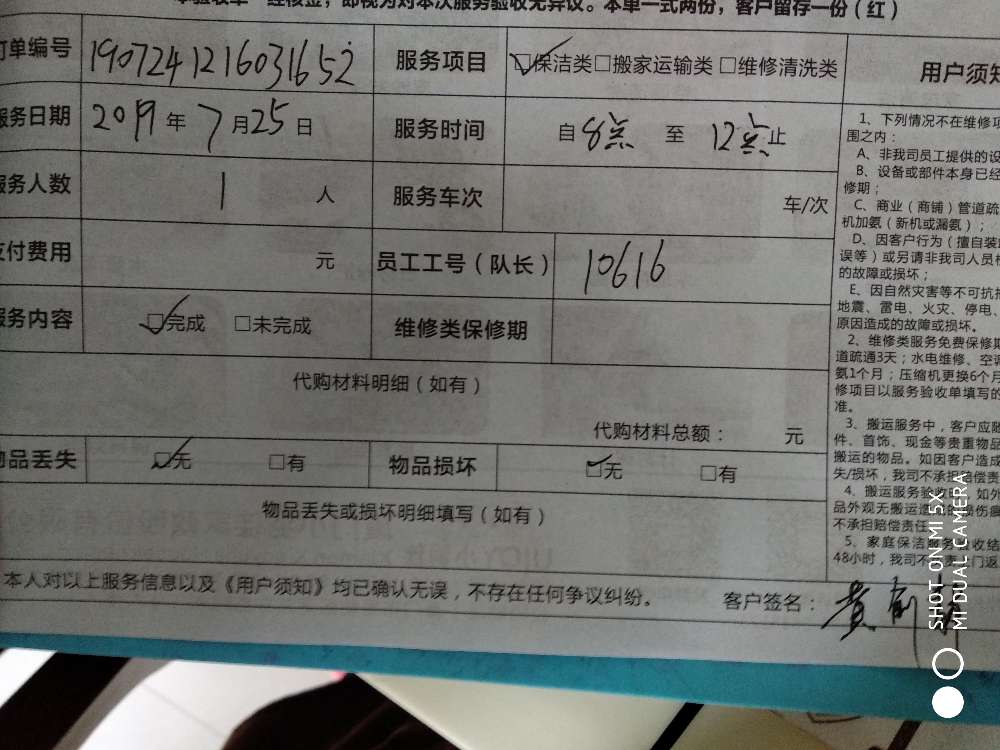 本验收单一经核签，即视为对本次服务验收无异议。本单一式两份，客户留存一份（红）
订单编号 1907241216031652 服务项目 ☑保洁类☐搬家运输类 ☐维修清洗类
用户须知
服务日期 2019 年 7 月 25 日 服务时间 自 8点 至 12点 止
服务人数 1 人 服务车次 车/次
支付费用 元 员工工号（队长） 10616
服务内容 ☑完成 ☐未完成 维修类保修期
代购材料明细（如有）
代购材料总额： 元
物品丢失 ☑无 ☐有 物品损坏 ☑无 ☐有
物品丢失或损坏明细填写（如有）
本人对以上服务信息以及《用户须知》均已确认无误，不存在任何争议纠纷。 客户签名：黄
1、下列情况不在维修
围之内：
A、非我司员工提供的设
B、设备或部件本身已经
修期；
C、商业（商铺）管道疏
机加氨（新机或漏氨）；
D、因客户行为（擅自装
误等）或另请非我司人员
的故障或损坏；
E、因自然灾害等不可抗
地震、雷电、火灾、停电、
原因造成的故障或损坏。
2、维修类服务免费保修期
道疏通3天；水电维修、空
氨1个月；压缩机更换6个月
修项目以服务验收单填写的
准。
3、搬运服务中，客户应
件、首饰、现金等贵重物品
搬运的物品。如因客户造成
失/损坏，我司不承担赔偿责
4、搬运服务验收时，如外
品外观无搬运造
不承担赔偿责任
5、家庭保洁服务验收结
48小时，我司不
SHOT ON MI 5X
MI DUAL CAMERA